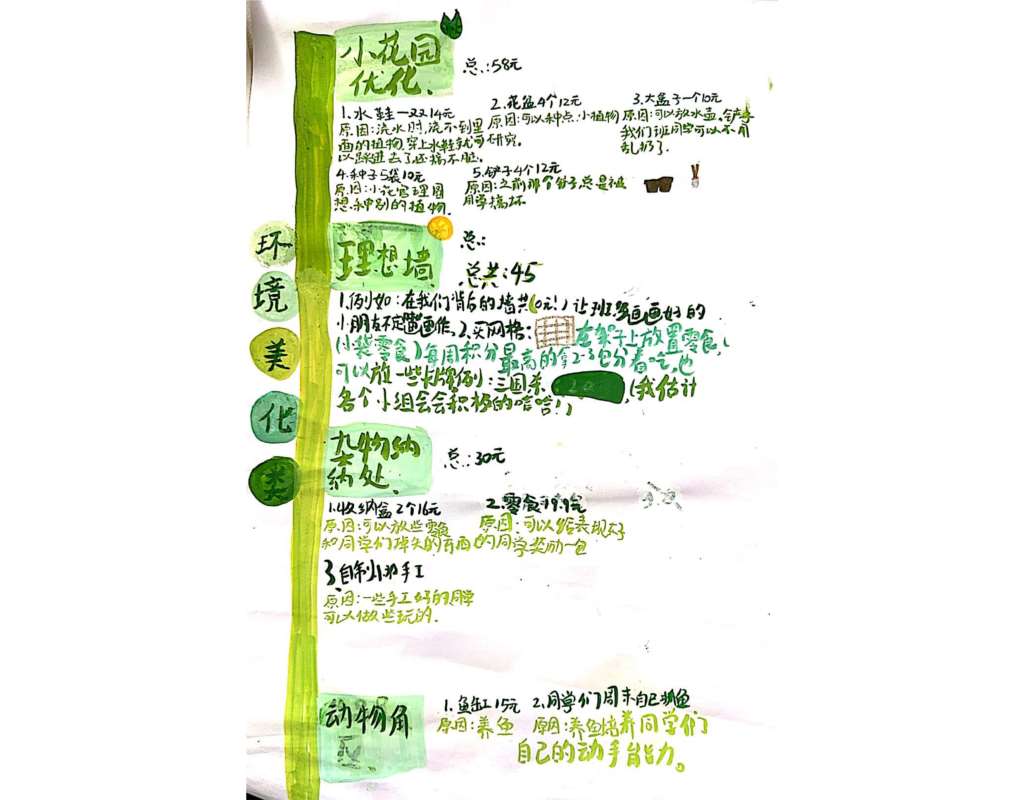 小花园
优化、
总:58元
1.水鞋一双14元
原因:浇水时,浇不到里
面的植物,穿上水鞋就可
以踩进去了还搞不脏。
2.花盆4个12元
原因:可以种点小植物
研究。
3.大盒子一个10元
原因:可以放水壶、铲子
我们班同学可以不用
乱扔了.
4.种子5袋10元
原因:小花官理园
想种别的植物.
5.铲子4个12元
原因:之前那个铲子总是被
同学搞坏
环
境
美
化
类
理想墙
总:
总共:45
1.例如:在我们背后的墙共(0元!)让班里画画好的
小朋友不定画作,2.买网格:
在架子上放置零食,
(小袋零食)每周积分最高的拿2-3包分着吃,也
可以放一些卡牌例:三国杀
(我估计
各个小组会会积极的哈哈!)
杂物纳
纳处、
总:30元
1.收纳盒2个16元
原因:可以放些零食
和同学们掉失的东西
2.零食 19.9元
原因:可以给表现好
的同学奖励一包
3.自制小手工
原因:一些手工好的同学
可以做些玩的.
动物角
区
1.鱼缸15元
原因:养鱼
2.同学们周末自己抓鱼
原因:养鱼培养同学们
自己的动手能力。